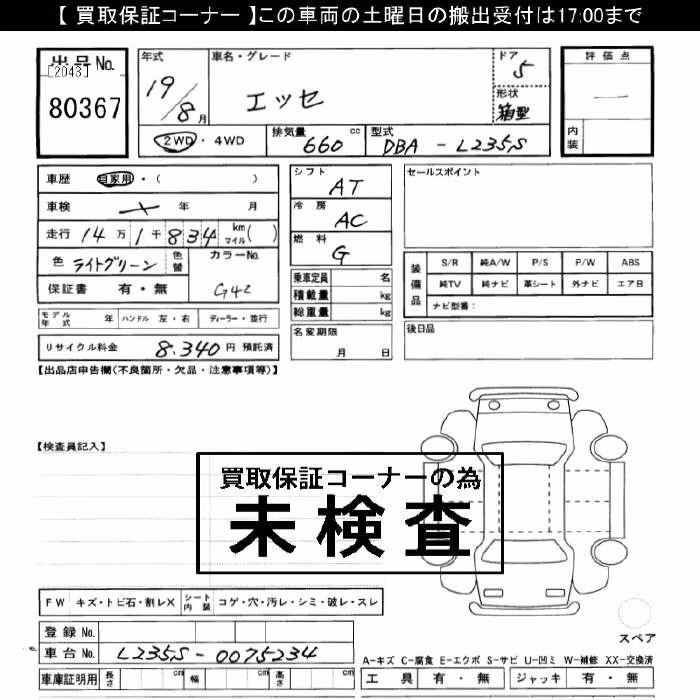 【 買取保証コーナー 】この車両の土曜日の搬出受付は17:00まで
出品No. [2043] 80367
年式 19/8月
車名・グレード エッセ
ドア 5
形状 箱型
評価点 —
内装
2WD・4WD
排気量 660 cc
型式 DBA - L235S
車歴 自家用・( )
車検 年 月
走行 14万1千834 km マイル( )
色 ライトグリーン 色替 カラーNo. G42
保証書 有・無
モデル年式 年 ハンドル 左・右 ディーラー・並行
リサイクル料金 8.340 円 預託済
シフト AT
冷房 AC
燃料 G
乗車定員 名
積載量 kg
総重量 kg
名変期限 月 日
セールスポイント
装備品 S/R 純A/W P/S P/W ABS
純TV 純ナビ 革シート 外ナビ エアB
ナビ型番:
後日品
【出品店申告欄(不良箇所・欠品・注意事項等)】
【検査員記入】
買取保証コーナーの為
未検査
FW キズ・トビ石・割レX シート内装 コゲ・穴・汚レ・シミ・破レ・スレ
登録No.
車台No. L235S-0075234
車庫証明用 長さ cm 幅 cm 高さ cm
スペア
A-キズ C-腐食 E-エクボ S-サビ U-凹ミ W-補修 XX-交換済
工具 有・無 ジャッキ 有・無